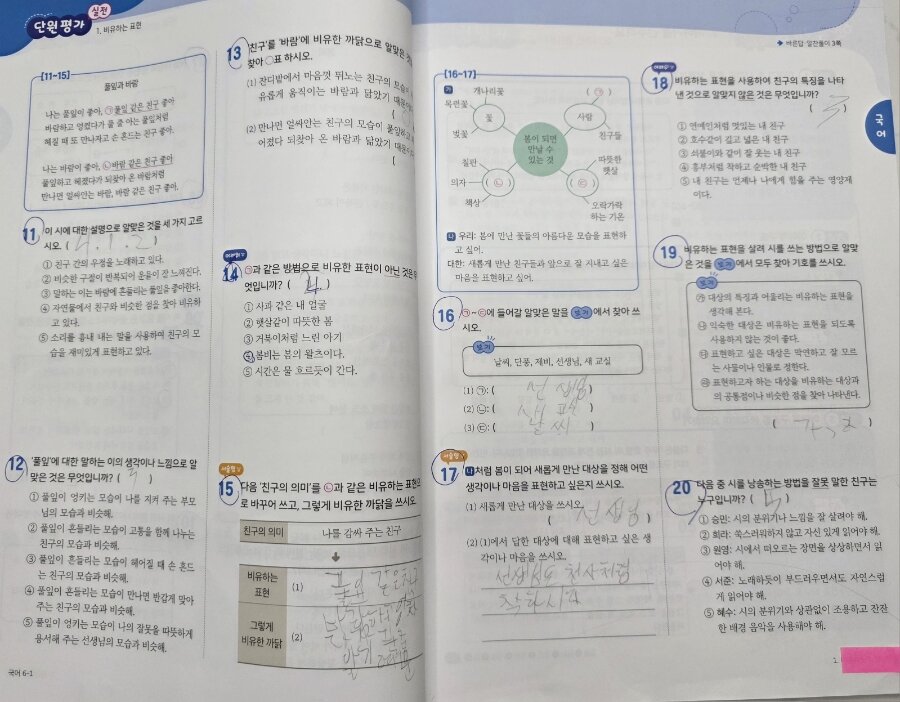 단원평가 실전
1. 비유하는 표현
[11~15]
풀잎과 바람
나는 풀잎이 좋아, ㉠풀잎 같은 친구 좋아
바람하고 엉켰다가 풀 줄 아는 풀잎처럼
헤질 때 또 만나자고 손 흔드는 친구 좋아.
나는 바람이 좋아, ㉡바람 같은 친구 좋아
풀잎하고 헤졌다가 되찾아 온 바람처럼
만나면 얼싸안는 바람, 바람 같은 친구 좋아.
11 이 시에 대한 설명으로 알맞은 것을 세 가지 고르
시오. ( 4, 1, 2 )
① 친구 간의 우정을 노래하고 있다.
② 비슷한 구절이 반복되어 운율이 잘 느껴진다.
③ 말하는 이는 바람에 흔들리는 풀잎을 좋아한다.
④ 자연물에서 친구와 비슷한 점을 찾아 비유하
고 있다.
⑤ 소리를 흉내 내는 말을 사용하여 친구의 모
습을 재미있게 표현하고 있다.
12 '풀잎'에 대한 말하는 이의 생각이나 느낌으로 알
맞은 것은 무엇입니까? ( )
① 풀잎이 엉키는 모습이 나를 지켜 주는 부모
님의 모습과 비슷해.
② 풀잎이 흔들리는 모습이 고통을 함께 나누는
친구의 모습과 비슷해.
③ 풀잎이 흔들리는 모습이 헤어질 때 손 흔드
는 친구의 모습과 비슷해.
④ 풀잎이 흔들리는 모습이 만나면 반갑게 맞아
주는 친구의 모습과 비슷해.
⑤ 풀잎이 엉키는 모습이 나의 잘못을 따뜻하게
용서해 주는 선생님의 모습과 비슷해.
국어 6-1
13 '친구'를 '바람'에 비유한 까닭으로 알맞은
찾아 ○표 하시오.
(1) 잔디밭에서 마음껏 뛰노는 친구의 모습이
유롭게 움직이는 바람과 닮았기 때문
(2) 만나면 얼싸안는 친구의 모습이 풀잎하고
어졌다 되찾아 온 바람과 닮았기 때문
(
어려워요
14 ㉠과 같은 방법으로 비유한 표현이 아닌 것은
엇입니까? ( 4 )
① 사과 같은 내 얼굴
② 햇살같이 따뜻한 봄
③ 거북이처럼 느린 아기
④ 봄비는 봄의 왈츠이다.
⑤ 시간은 물 흐르듯이 간다.
서술형
15 다음 '친구의 의미'를 ㉡과 같은 비유하는 표현
로 바꾸어 쓰고, 그렇게 비유한 까닭을 쓰시오.
친구의 의미 나를 감싸 주는 친구
비유하는
표현 (1)
그렇게
비유한 까닭 (2)
바른답·알찬풀이 3쪽
[16~17]
가
개나리꽃
목련꽃 꽃
벚꽃
( ㉠ )
사람
친구들
봄이 되면
만날 수
있는 것
칠판
의자 ( ㉡ )
책상
따뜻한
햇살
( ㉢ )
오락가락
하는 기온
나 우리: 봄이 만난 꽃들의 아름다운 모습을 표현하
고 싶어.
대한: 새롭게 만난 친구들과 앞으로 잘 지내고 싶은
마음을 표현하고 싶어.
16 ㉠~㉢에 들어갈 알맞은 말을 보기에서 찾아 쓰
시오.
보기
날씨, 단풍, 제비, 선생님, 새 교실
(1) ㉠: ( 선생님 )
(2) ㉡: ( )
(3) ㉢: ( 날씨 )
서술형
17 나처럼 봄이 되어 새롭게 만난 대상을 정해 어떤
생각이나 마음을 표현하고 싶은지 쓰시오.
(1) 새롭게 만난 대상을 쓰시오.
( 선생님 )
(2) (1)에서 답한 대상에 대해 표현하고 싶은 생
각이나 마음을 쓰시오.
천사처럼
착하시다
어려워요
18 비유하는 표현을 사용하여 친구의 특징을 나타
낸 것으로 알맞지 않은 것은 무엇입니까?
( 3 )
① 연예인처럼 멋있는 내 친구
② 호수같이 깊고 넓은 내 친구
③ 쇠붙이와 같이 잘 웃는 내 친구
④ 흥부처럼 착하고 순박한 내 친구
⑤ 내 친구는 언제나 나에게 힘을 주는 영양제
이다.
국어
19 비유하는 표현을 살려 시를 쓰는 방법으로 알맞
은 것을 보기에서 모두 찾아 기호를 쓰시오.
보기
㉮ 대상의 특징과 어울리는 비유하는 표현을
생각해 본다.
㉯ 익숙한 대상은 비유하는 표현을 되도록
사용하지 않는 것이 좋다.
㉰ 표현하고 싶은 대상은 막연하고 잘 모르
는 사물이나 인물로 정한다.
㉱ 표현하고자 하는 대상을 비유하는 대상과
의 공통점이나 비슷한 점을 찾아 나타낸다.
( )
20 다음 중 시를 낭송하는 방법을 잘못 말한 친구는
누구입니까? ( 5 )
① 승민: 시의 분위기나 느낌을 잘 살려야 해.
② 희라: 쑥스러워하지 않고 자신 있게 읽어야 해.
③ 원영: 시에서 떠오르는 장면을 상상하면서 읽
어야 해.
④ 서준: 노래하듯이 부드러우면서도 자연스럽
게 읽어야 해.
⑤ 혜수: 시의 분위기와 상관없이 조용하고 잔잔
한 배경 음악을 사용해야 해.